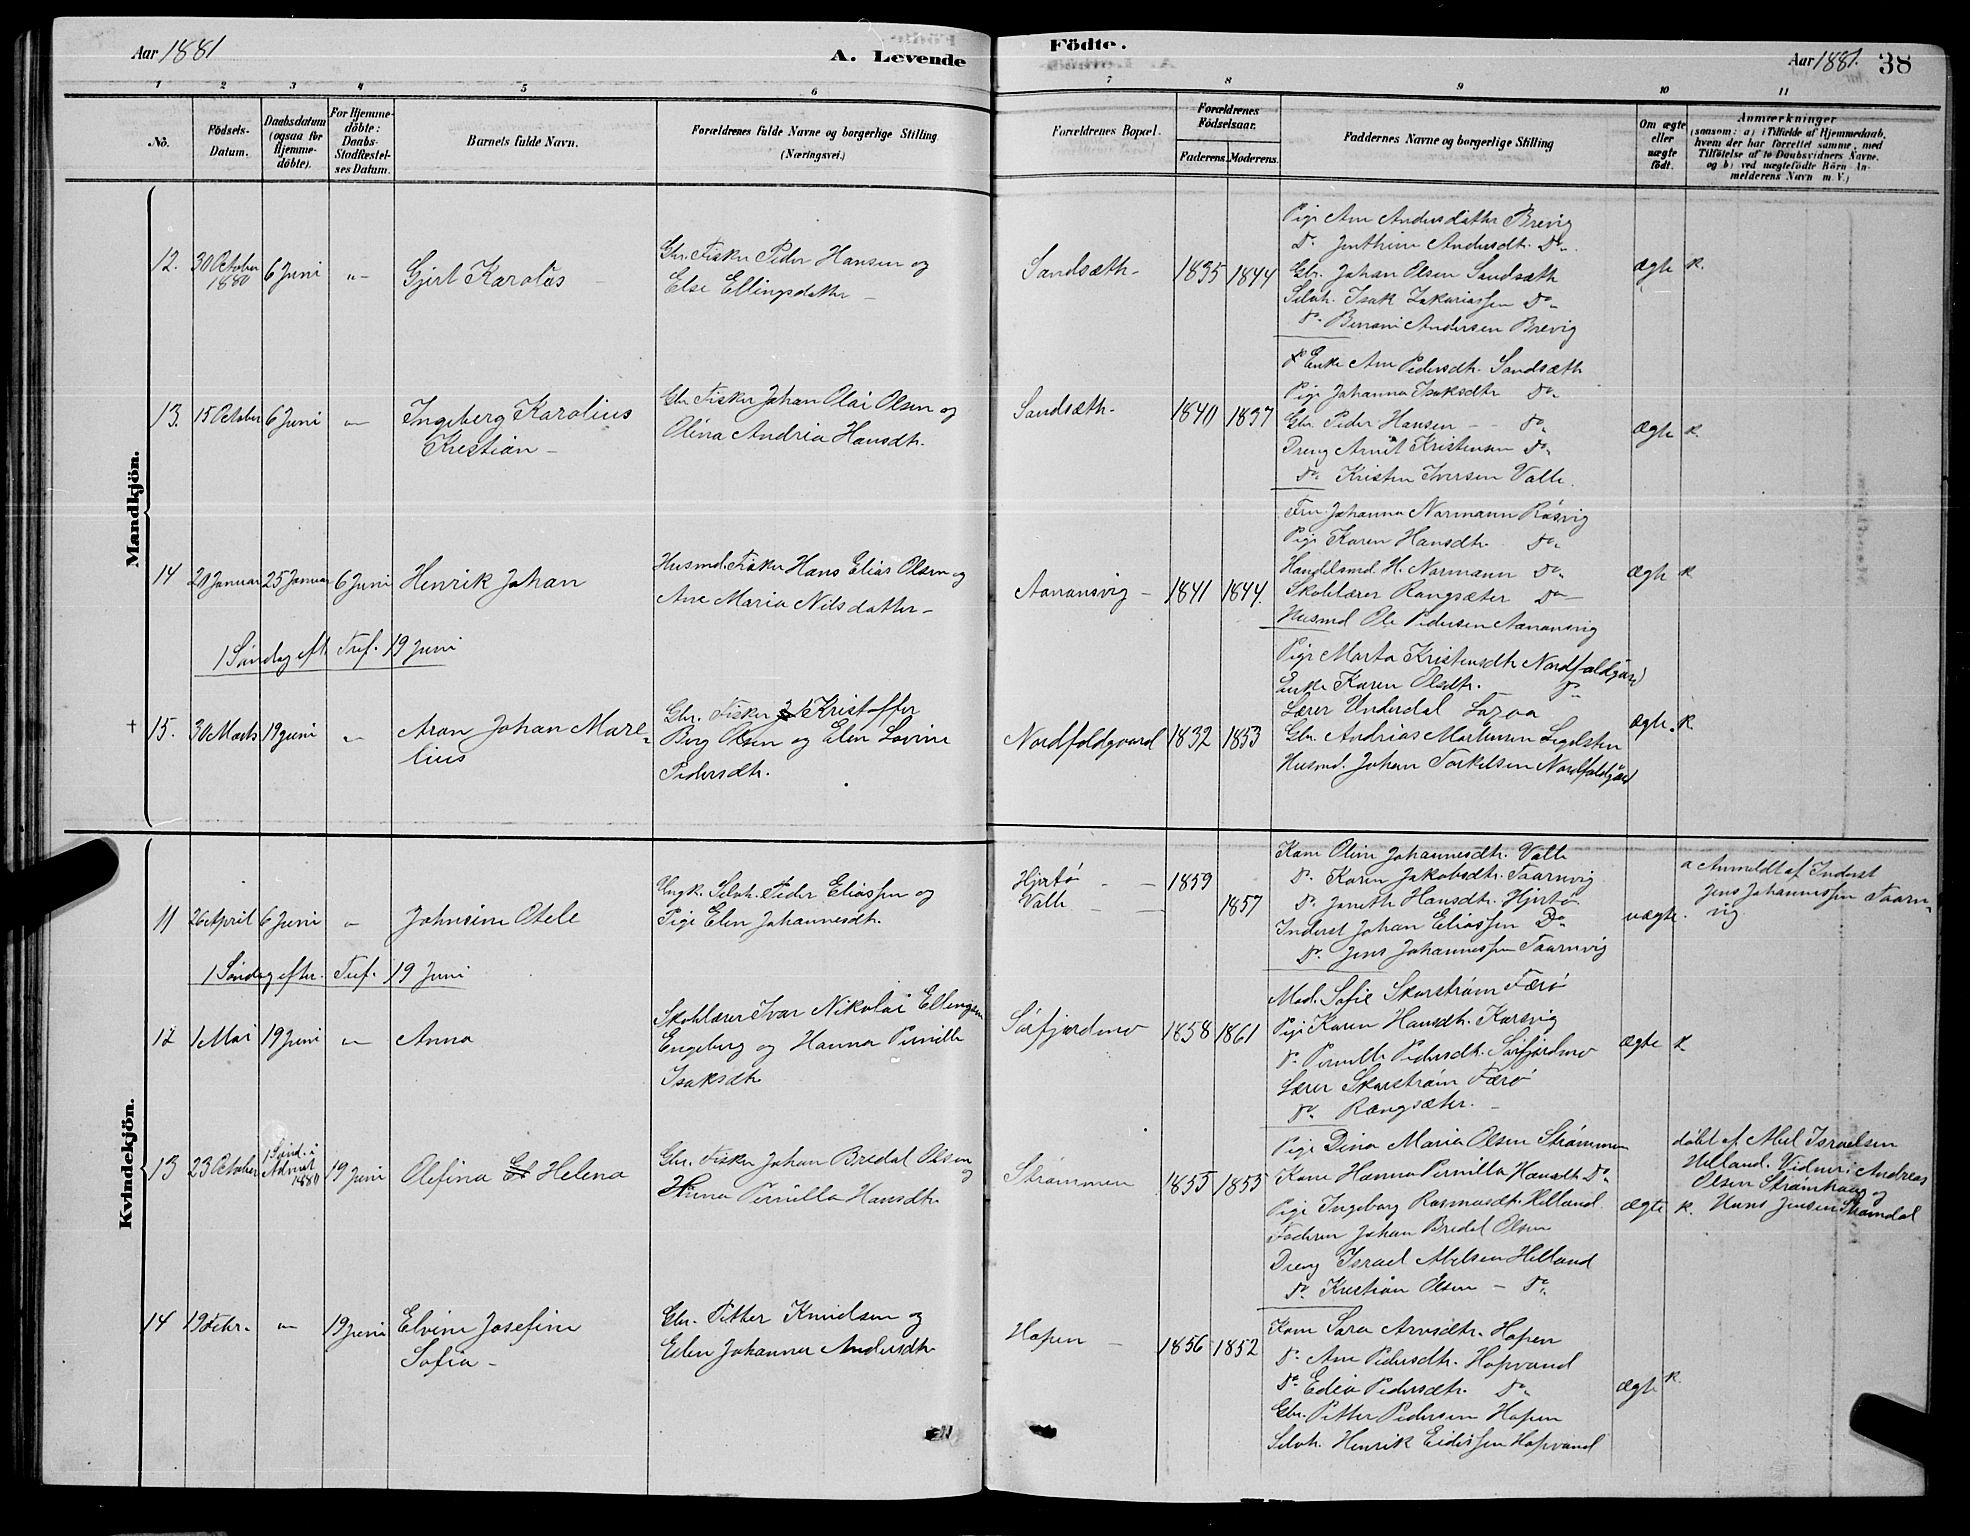 Aar 1881
A. Levende
Födte.
Aar 1881.
38
1 2 3 4 5 6
7 8 9 10 11
No.
Födsels-
Datum.
Daabsdatum
(ogsaa for
Hjemme-
döbte).
For Hjemme-
döbte:
Daabs-
Stadfæstel-
ses Datum.
Barnets fulde Navn.
Forældrenes fulde Navne og borgerlige Stilling
(Næringsvei.)
Forældrenes Bopæl.
Forældrenes
Födselsaar.
Faderens. Moderens.
Faddernes Navne og borgerlige Stilling
Om ægte
eller
uægte
födt.
Anmærkninger
(saasom: a) i Tilfælde af Hjemmedaab,
hvem der har forrettet samme, med
Tilföielse af to Daabsvidners Navne,
og b) ved uægtefödte Börn An-
melderens Navn m. V.)
Mandkjön.
12. 30 October
1880
6 Juni
"
Gjert Karolus
Gbr. Fisker Peder Hansen og
Else Ellingsdatter
Sandsæth
1835 1844
Pige Ane Andersdatter Brevig
Do. Jenthine Andersdt. Do
Gbr. Johan Olsen Sandsæth
Selvh. Isak Zakariassen Do
Do Benoni Andersen Brevig
ægte k.
13. 15 October 6 Juni
"
Ingeberg Karolius
Kristian
Gbr Fisker Johan Olai Olsen og
Olina Andria Hansdtr.
Sandsæth
1840 1837
Enke Ane Pedersdtr. Sandsæth
Pige Johanna Isaksdtr Do
Gbr. Peder Hansen Do
Dreng Arnt Kristensen Do
Do Kristen Iversen Valle.
ægte k.
14 20 Januar 25 Januar 6 Juni
Henrik Johan
Husmd. Fisker Hans Elias Olsen og
Ane Maria Nilsdatter
Aanansvig
1841 1844.
Fru Johanna Normann Røsvig
Pige Karen Hansdtr. Do
Handelsmd. H. Normann Do
Skolelærer Rangsæter Do
Husmd Ole Pedersen Aanansvig
ægte k
1 Søndag eft. Tref. 19 Juni
+ 15. 30 Marts 19 Juni
"
Aron Johan Mare-
lius
Gbr. Fisker Kristoffer
Berg Olsen og Elen Lovine
Pedersdtr.
Nordfoldgaard
1832 1853
Pige Marta Kristensdtr Nordfoldgård
Enke Karen Olsdtr. Do
Lærer Underdal
Gbr. Andrias Mortensen
Husmd. Johan Torkelsen Nordfoldgård
ægte. k
Kvindekjön.
11 26 April 6 Juni
"
Johnsine Otele
Ungk. Selvh. Peder Eliassen og
Pige Elen Johannesdtr.
Hjertø
Valle
1859
1857
Kone Oline Johannesdtr. Valle
Do. Karen Jakobsdtr. Taarnvig
Do Janeth Hansdtr. Hjertø
Inderst Johan Eliassen Do
Do. Jens Johannessen Taarnvig
uægte.
a Anmeldt af Inderst
Jens Johannessen Taarn-
vig
1 Søndag efter. Tref. 19 Juni
12 1 Mai 19 Juni
"
Anna
Skolelærer Ivar Nikolai Ellingsen
Engeberg og Hanna Pernille
Isaksdtr
Sørfjordmo
1858 1861
Mad. Sofie Skarstrøm Færø
Pige Karen Hansdtr. Korsvig
Do. Pernille Pedersdtr. Sørfjordmo
Lærer Skarstrøm Færø
Do. Rangsæter.
ægte k.
13 23 October
1 Sønd. i
Advent
1880
19 Juni
Olefina Helena
Gbr. Fisker Johan Bredal Olsen
og
Hanna Pernilla Hansdtr
Strømmen
1855 1855
Pige Dina Maria Olsen Strømmen
Kone Hanna Pernilla Hansdtr Do
Pige Ingeborg Rasmusdtr. Helland
Faderen Johan Bredal Olsen
Dreng Israel Abelsen Helland
Do. Kristian Olsen Do
ægte k.
døbt af Abel Israelsen
Helland. Vidner: Andreas
Olsen Strømhaug og
Hans Jensen Strømdal
14 19 Febr.
"
19 Juni
Elvine Josefine
Sofia
Gbr. Petter Knudsen og
Elen Johanna Andersdtr
Hopen
1856 1852
Kone Sara Arnsdtr. Hopen
Do. Ane Pedersdtr. Hopvand
Do. Edia Pedersdtr. Do
Gbr. Petter Pedersen Hopen
Selvh. Henrik Eidissen Hopvand
ægte k.